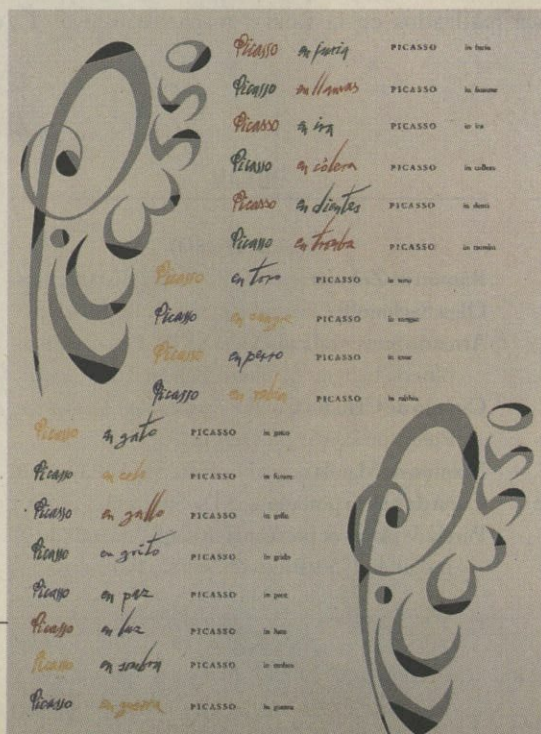 Picasso
Picasso en furia PICASSO in furia
Picasso en llamas PICASSO in
Picasso en ira PICASSO in ira
Picasso en cólera PICASSO in collera
Picasso en dientes PICASSO in denti
Picasso en tromba PICASSO in tromba
Picasso en toro PICASSO in toro
Picasso en sangre PICASSO in sangue
Picasso en perro PICASSO in cane
Picasso en rabia PICASSO in rabbia
Picasso en gato PICASSO in gatto
Picasso en celo PICASSO in furore
Picasso en gallo PICASSO in gallo
Picasso en grito PICASSO in grido
Picasso en paz PICASSO in pace
Picasso en luz PICASSO in luce
Picasso en sombra PICASSO in ombra
Picasso en guerra PICASSO in guerra
Picasso